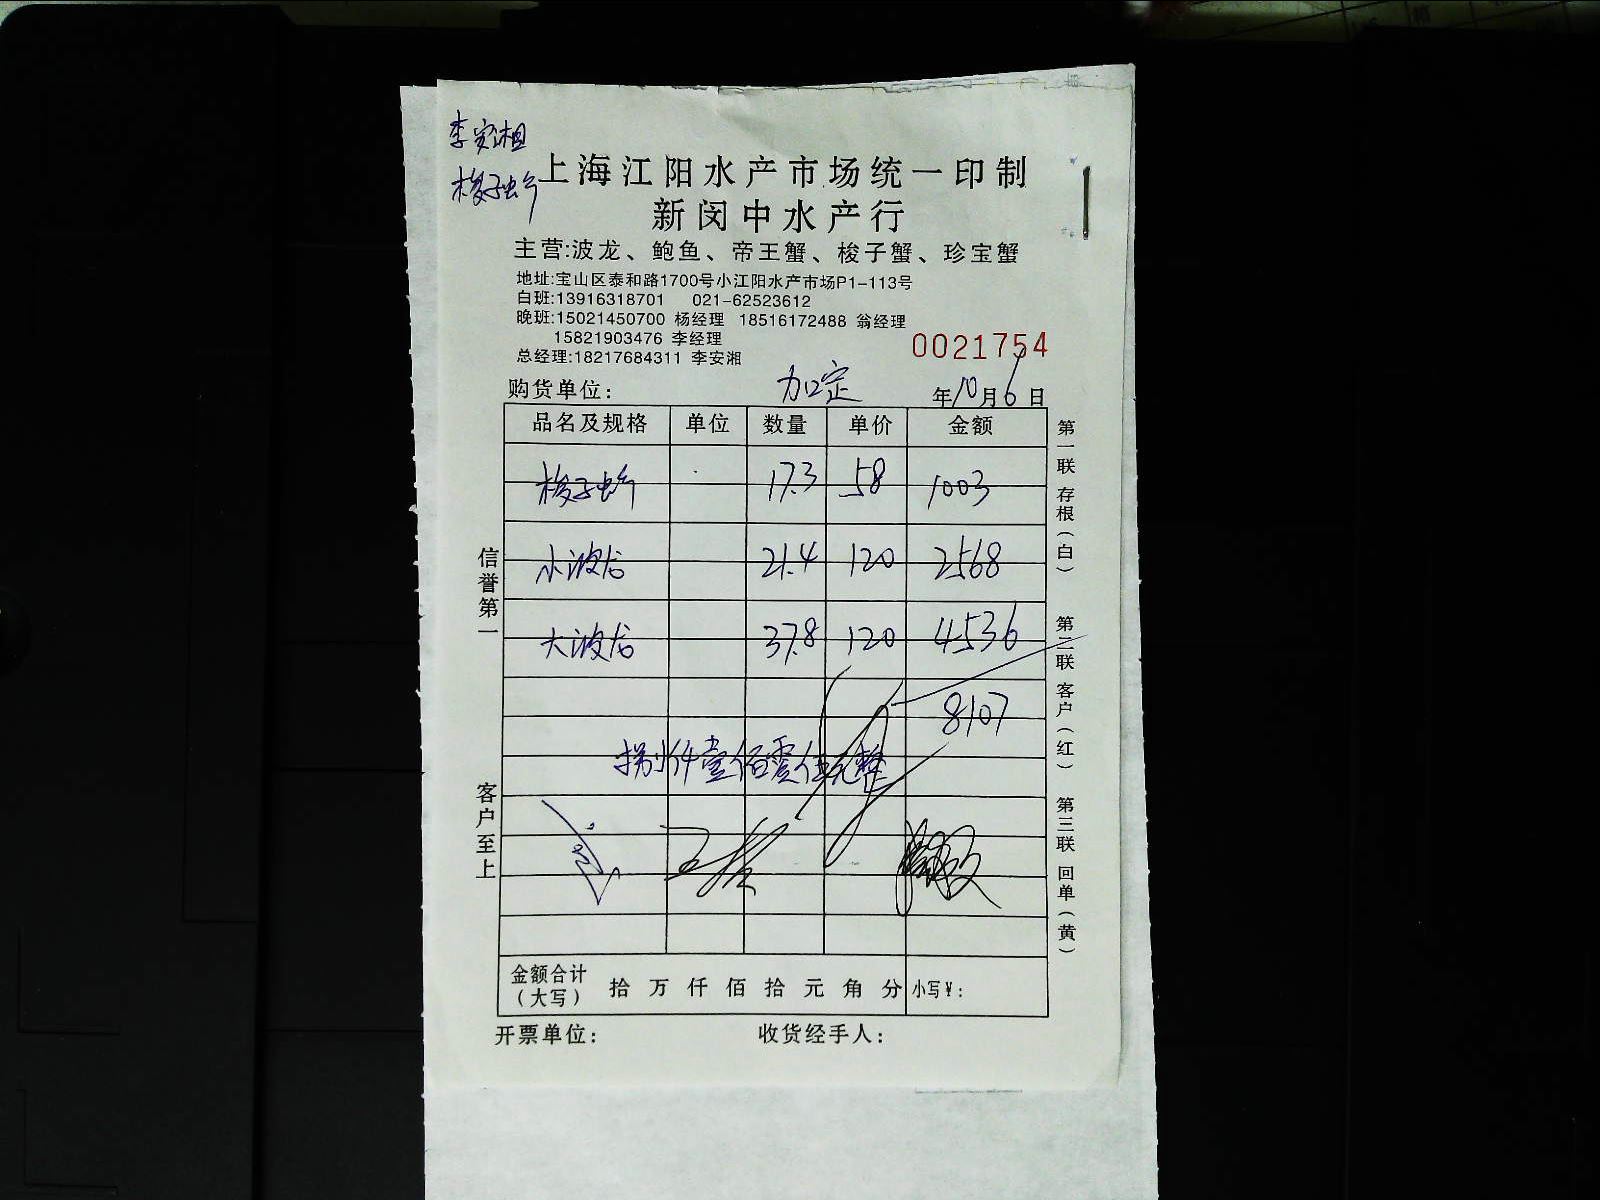 李安湘
梭子蟹
上海江阳水产市场统一印制
新闵中水产行
主营:波龙、鲍鱼、帝王蟹、梭子蟹、珍宝蟹
地址:宝山区泰和路1700号小江阳水产市场P1-113号
白班:13916318701 021-62523612
晚班:15021450700 杨经理 18516172488 翁经理
15821903476 李经理
总经理:18217684311 李安湘
0021754
购货单位: 加定 年10月6日
品名及规格 单位 数量 单价 金额
梭子蟹 17.3 58 1003
小波龙 21.4 120 2568
大波龙 37.8 120 4536
8107
捌仟壹佰零 元整
金额合计(大写) 拾 万 仟 佰 拾 元 角 分 小写¥:
开票单位: 收货经手人:
信誉第一
客户至上
第一联 存根(白)
第二联 客户(红)
第三联 回单(黄)